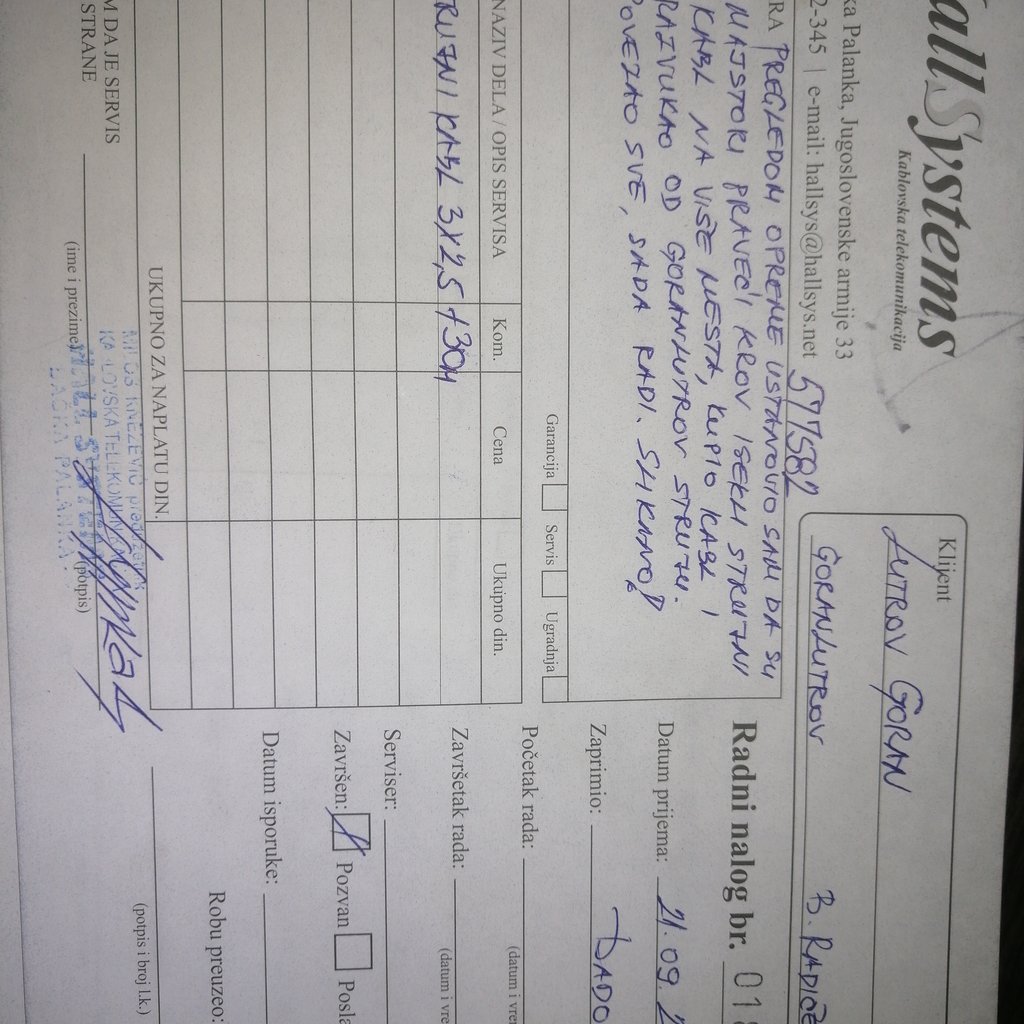 HallSystems
Kablovska telekomunikacija
ka Palanka, Jugoslovenske armije 33
2-345 | e-mail: hallsys@hallsys.net
577582
Klijent
LUTROV GORAN
GORANLUTROV B. RADIČE
RA PREGLEDOM OPREME USTANOVIO SAM DA SU
MAJSTORI PRAVEĆI KROV ISEKLI STRUJNI
KABL NA VIŠE MESTA, KUPIO KABL I
RAZVUKAO OD GORANLUTROV STRUJU.
POVEZAO SVE, SADA RADI. SLIKANO
Garancija Servis Ugradnja
NAZIV DELA / OPIS SERVISA Kom. Cena Ukupno din.
RUJNI KABL 3X2,5 +30M
UKUPNO ZA NAPLATU DIN.
Radni nalog br. 01
Datum prijema: 21.09.2
Zaprimio: DADO
Početak rada:
(datum i vre
Završetak rada:
(datum i vre
Serviser:
Završen: Pozvan Posla
Datum isporuke:
Robu preuzeo:
(potpis i broj l.k.)
M DA JE SERVIS
STRANE
(ime i prezime) (potpis)
MILOŠ KNEŽEVIĆ
KABLOVSKA TELEKOMUNIKA
HALL SYSTEM
BAČKA PALANKA